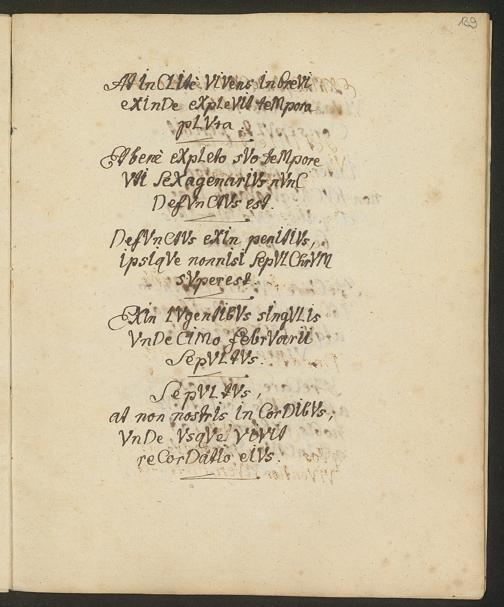 139
At inCLitè VIVens In breVI
eXInDe eXpLeVIt teMpora
pLVra.
At benè eXpLeto sVo teMpore
Vti SeXagenariVs nVnC
DefVnCtVs est.
DefVnCtVs eXin penitIVs,
ipsiqVe nonnisi sepVLChrVM
sVperest.
EXin LVgentIbVs sIngVLis
VnDeCIMo febrVarii
SepVLtVs.
SepVLtVs,
at non nostris in CorDIbVs;
VnDe VsqVe VIVIt
reCorDatIo eIVs.